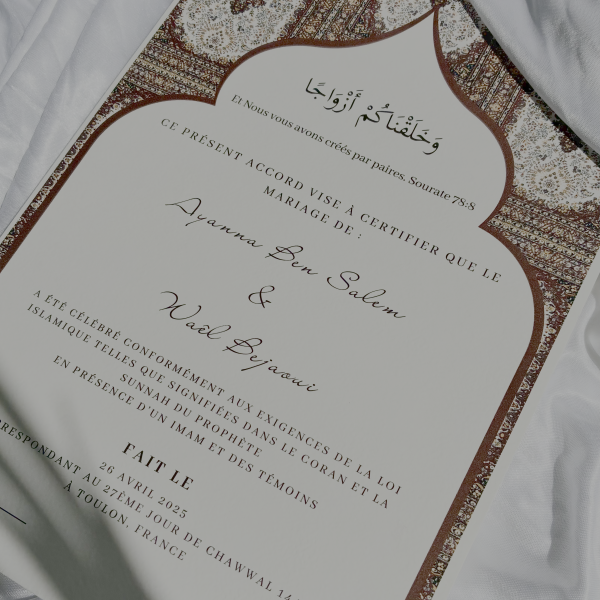 وَخَلَقْنَاكُمْ أَزْوَاجًا
Et Nous vous avons créés par paires. Sourate 78:8
CE PRÉSENT ACCORD VISE À CERTIFIER QUE LE
MARIAGE DE :
Ayanna Ben Salem
&
Waël Bejaoui
A ÉTÉ CÉLÉBRÉ CONFORMÉMENT AUX EXIGENCES DE LA LOI
ISLAMIQUE TELLES QUE SIGNIFIÉES DANS LE CORAN ET LA
SUNNAH DU PROPHÈTE
EN PRÉSENCE D'UN IMAM ET DES TÉMOINS
FAIT LE
26 AVRIL 2025
RESPONDANT AU 27ÈME JOUR DE CHAWWAL 14
À TOULON, FRANCE